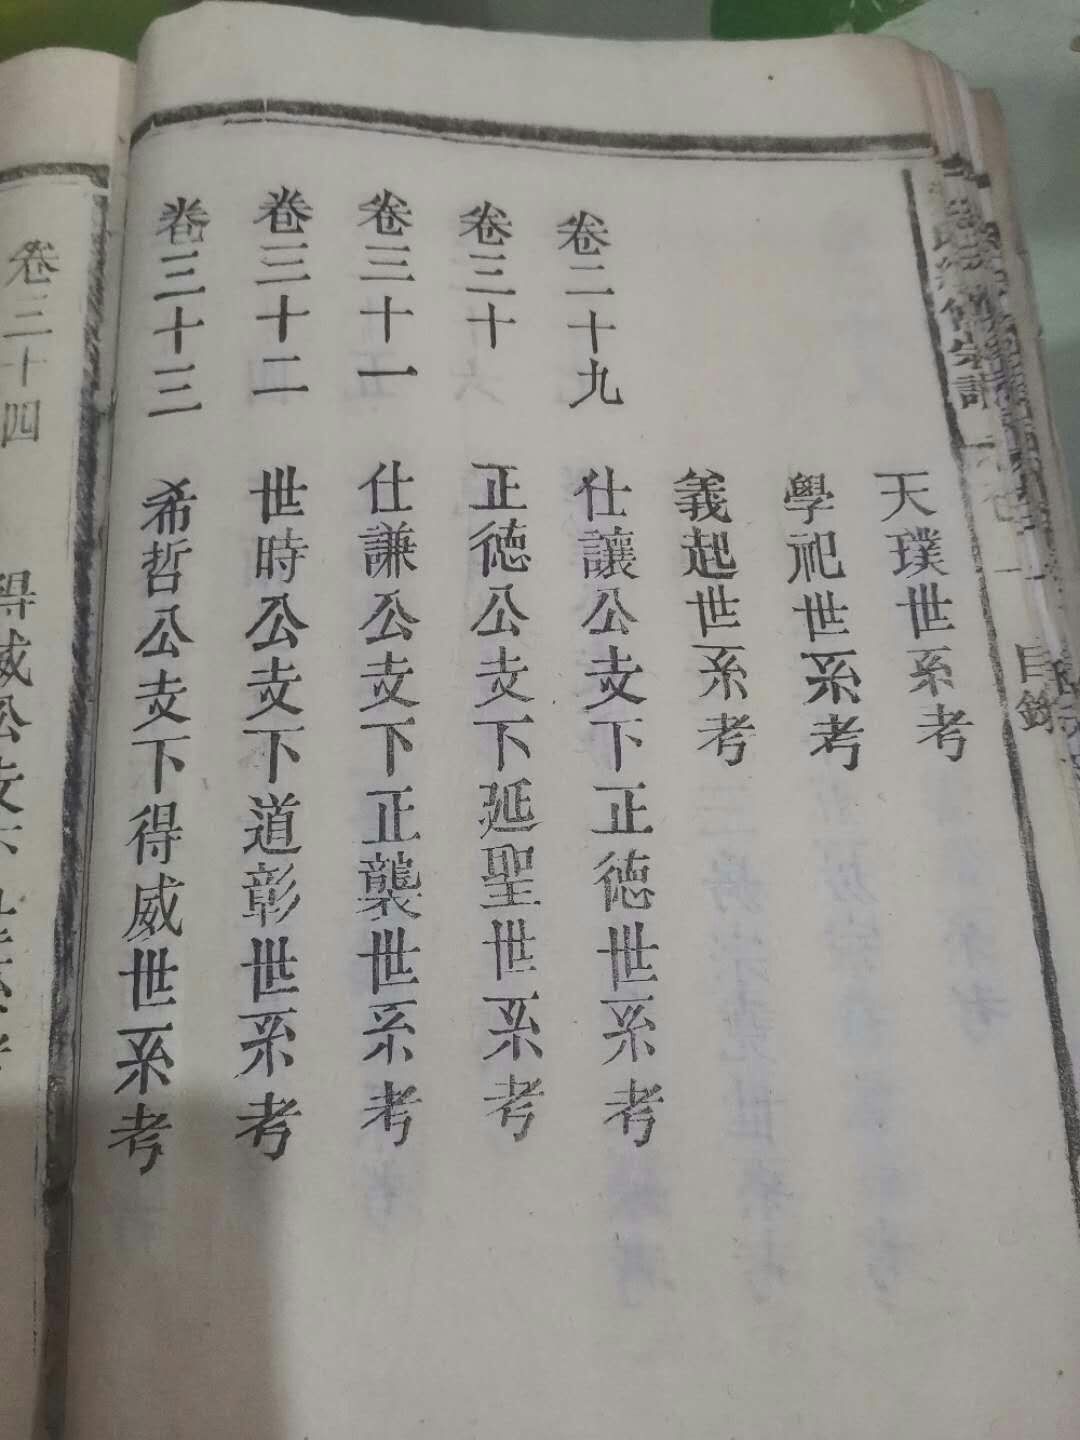 目錄
天璞世系考
學祀世系考
義起世系考
卷二十九 仕讓公支下正德世系考
卷三十 正德公支下延聖世系考
卷三十一 仕謙公支下正襲世系考
卷三十二 世時公支下道彰世系考
卷三十三 希哲公支下得威世系考
卷三十四 得威公支下